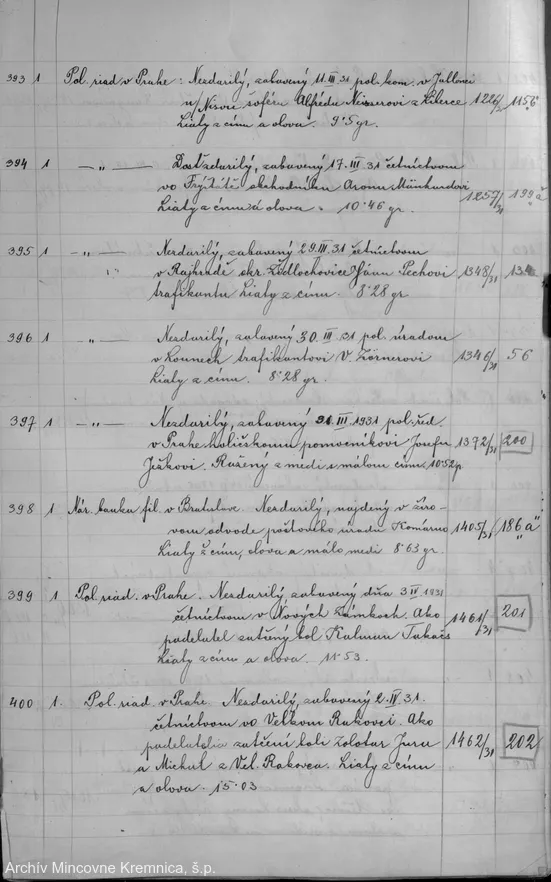 393 1 Pol. riad v Prahe : Nezdarilý, zabavený 11.III.31 pol. kom. v Jablonci
n/Nisou šoféru Alfredu Neisserovi z Liberce 1226/31 115 b
Liaty z cínu a olova. 9·5 gr.
394 1 —„— Dosť zdarilý, zabavený 17.III.31 četníctvom
vo Frýštáte obchodníkovi Aronu 1257/31 199 a
Liaty z cínu a olova. 10·46 gr.
395 1 —„— Nezdarilý, zabavený 29.III.31 četníctvom
„ v Rajhradě okr. Židlochovice Jánu Pechovi 1348/31 134
trafikantu Liaty z cínu. 8·28 gr
396 1 —„— Nezdarilý, zabavený 30.III.31 pol. úradom
v Lounech trafikantovi V. Zörnerovi 1346/31 56
Liaty z cínu. 8·28 gr.
397 1 —„— Nezdarilý, zabavený 31.III.1931 pol. řed.
v Prahe holičskému pomocníkovi Josefu 1372/31 200
Ježkovi. Ražený z medi s málom cínu 10·52 g
398 1 Nár. banka fil. v Bratislave. Nezdarilý, najdený v
odvode poštovního úradu Komárno 1405/31 186 „a“
Liaty z cínu, olova a málo medi 8·63 gr.
399 1 Pol. riad. v Prahe. Nezdarilý, zabavený dňa 3 IV 1931
četníctvom v Nových Zámkoch. Ako 1461/31 201
padelatel zatčený bol Kalman Takács
Liaty z cínu a olova. 11·53.
400 1. Pol. riad v Prahe. Nezdarilý, zabavený 2.IV.31.
četníctvom vo Veľkom Rakovci. Ako
padelatelia zatčení boli Zolotar Jura 1462/31 202
a Michal z Vel. Rakovca. Liaty z cínu
a olova. 15·03
Archív Mincovne Kremnica, š.p.